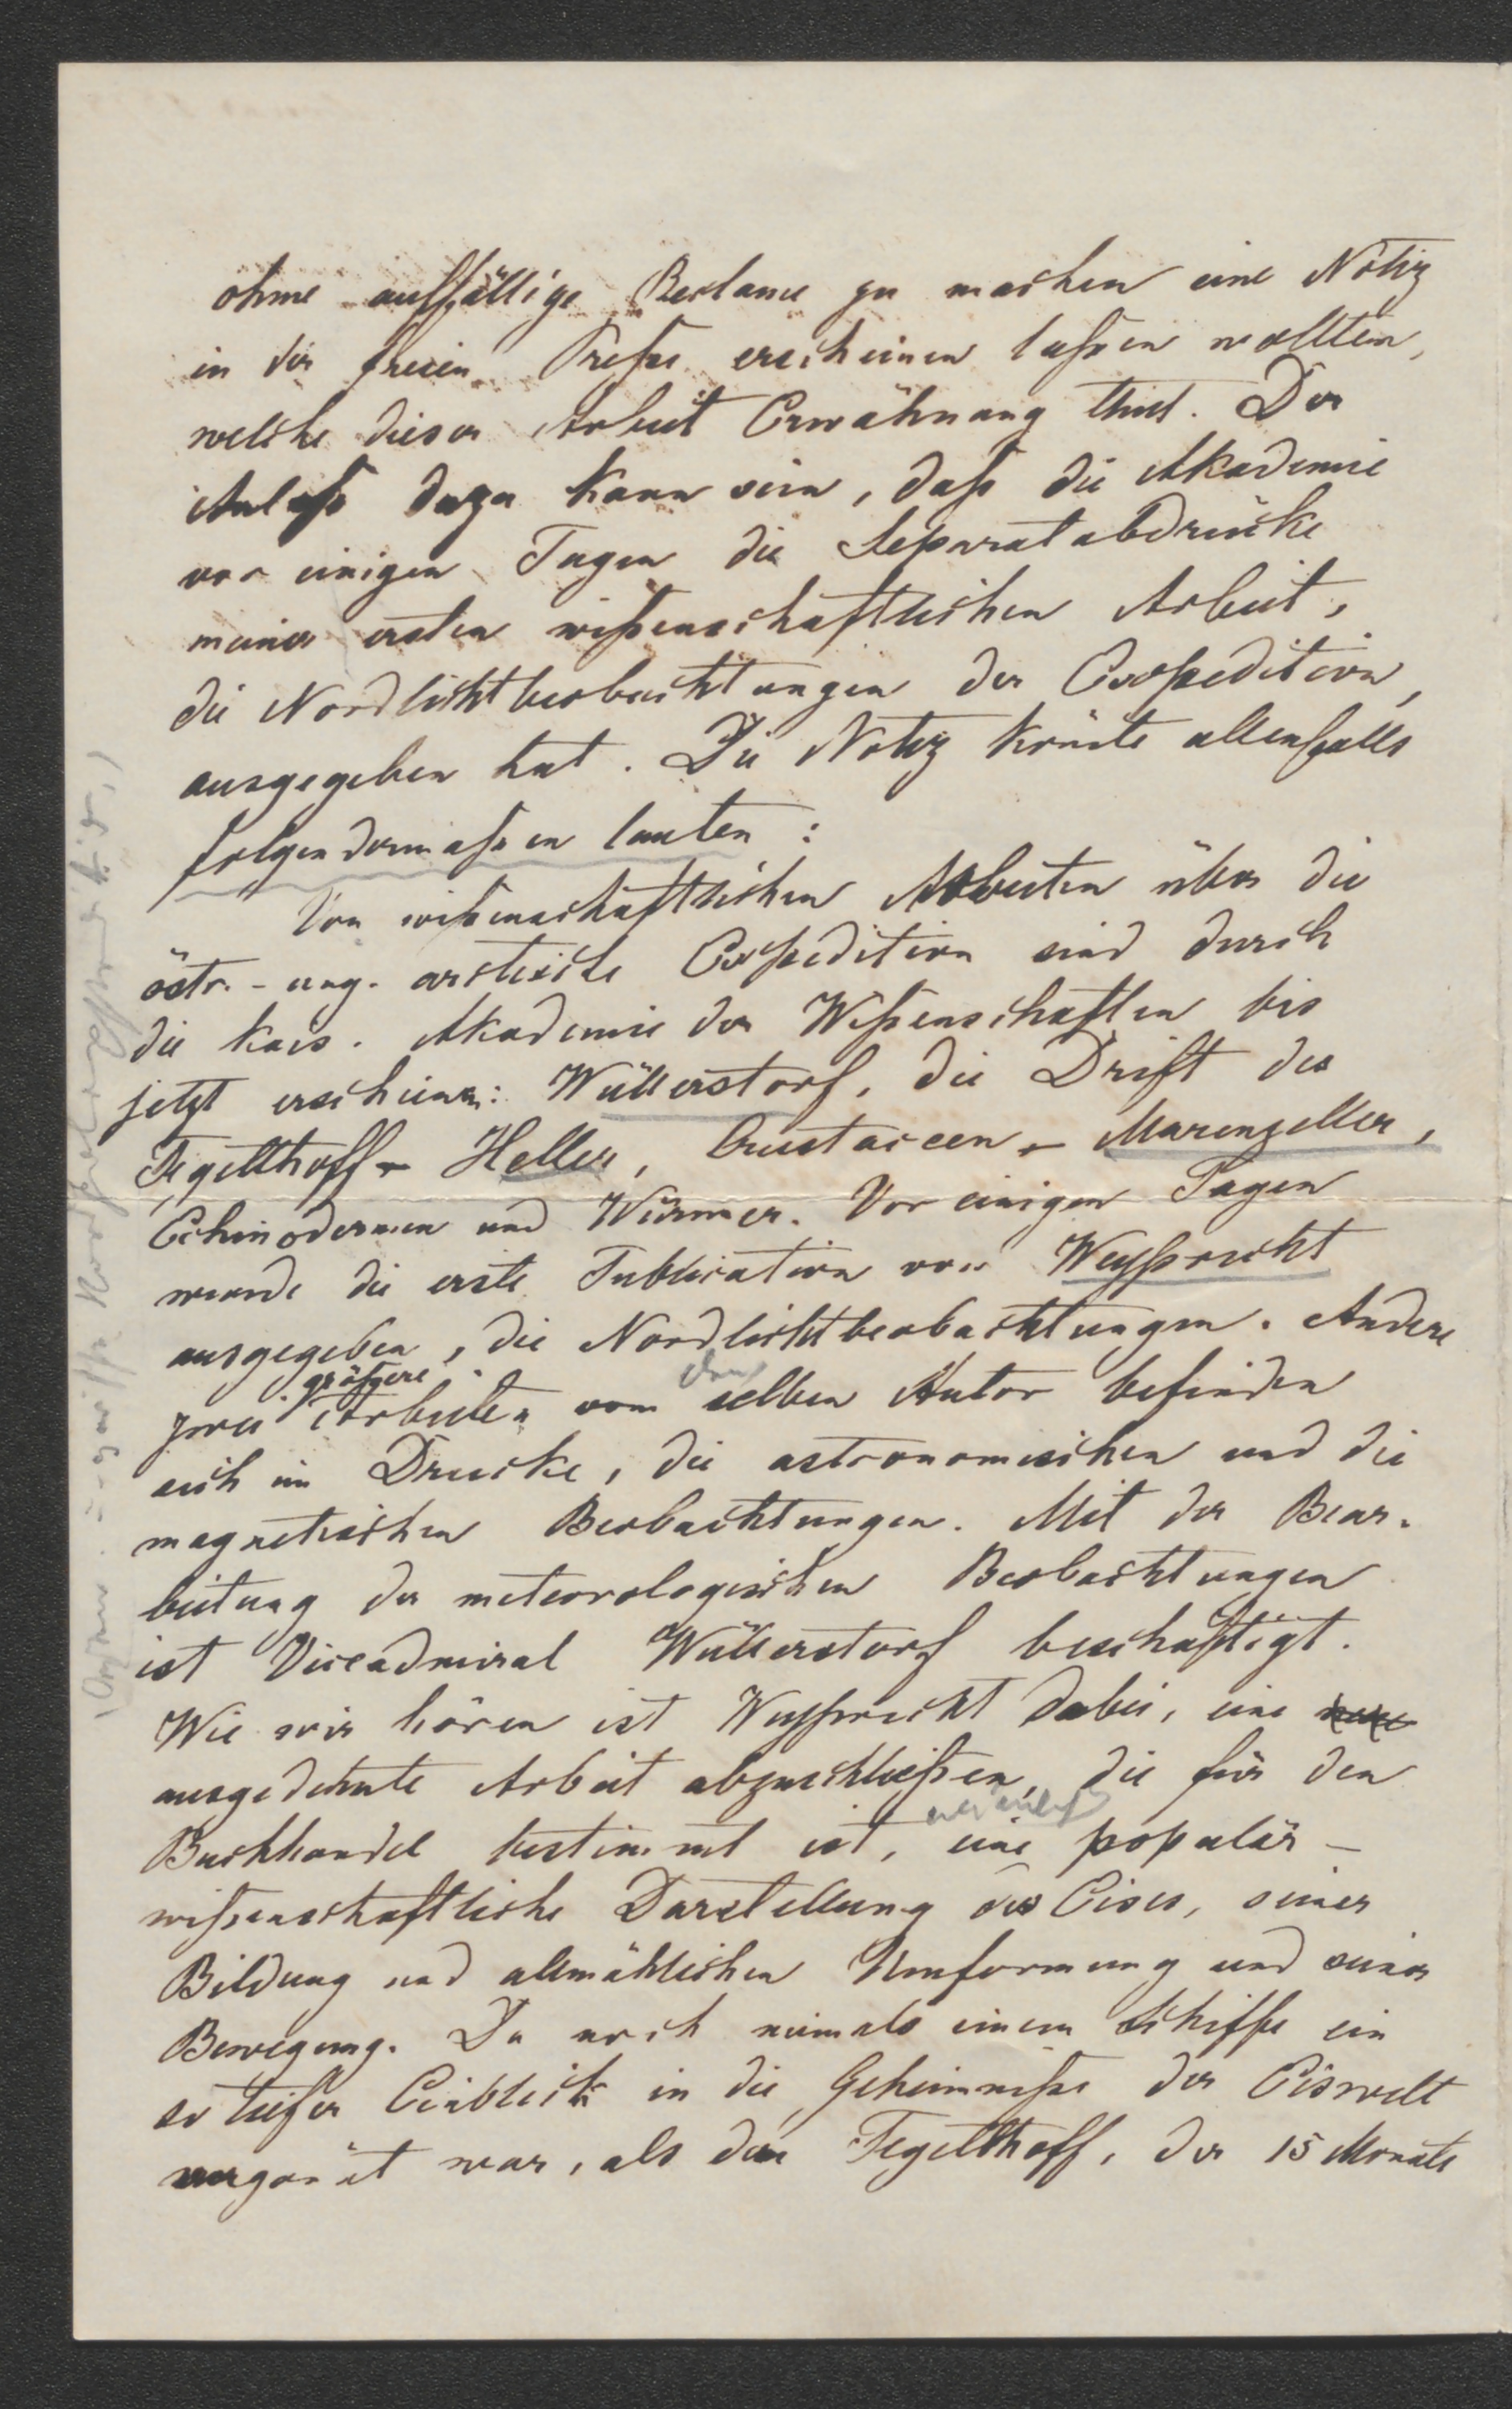 ohne auffällige Reclame zu machen eine Notiz
in der freien Presse erscheinen laßen wollten,
welche dieser Arbeit Erwähnung thut. Der
Anlaß dazu kann sein, daß die Akademie
vor einigen Tagen die Separatabdrücke
meiner ersten wißenschaftlichen Arbeit,
die Nordlichtbeobachtungen der Expedition,
ausgegeben hat. Die Notiz könnte allenfalls
folgendermaßen lauten:
Von wißenschaftlichen Arbeiten über die
östr.-ung. arctische Expedition sind durch
die kais. Akademie der Wißenschaften bis
jetzt erschienen: Wüllerstorf, die Drift des
Tegetthoff - Heller, Crustaceen - Marenzeller,
Echinodermen und Würmer. Vor einigen Tagen
wurde die erste Publication von Weyprecht
ausgegeben, die Nordlichtbeobachtungen. Andere
größere
zwei Arbeiten vom selben Autor befinden
sich im Drucke, die astronomischen und die
magnetischen Beobachtungen. Mit der Bear-
beitung der meteorologischen Beobachtungen
ist Viceadmiral Wüllerstorf beschäftigt.
Wie wir hören ist Weyprecht dabei, eine
ausgedehnte Arbeit abzuschließen, die für den
Buchhandel bestimmt ist, eine populär-
wißenschaftliche Darstellung des Eises, seiner
Bildung und allmählichen Umformung und seiner
Bewegung. Da noch niemals einem Schiffe ein
so tiefer Einblick in die Geheimniße der Eiswelt
vergönnt war, als dem Tegetthoff, der 15 Monate